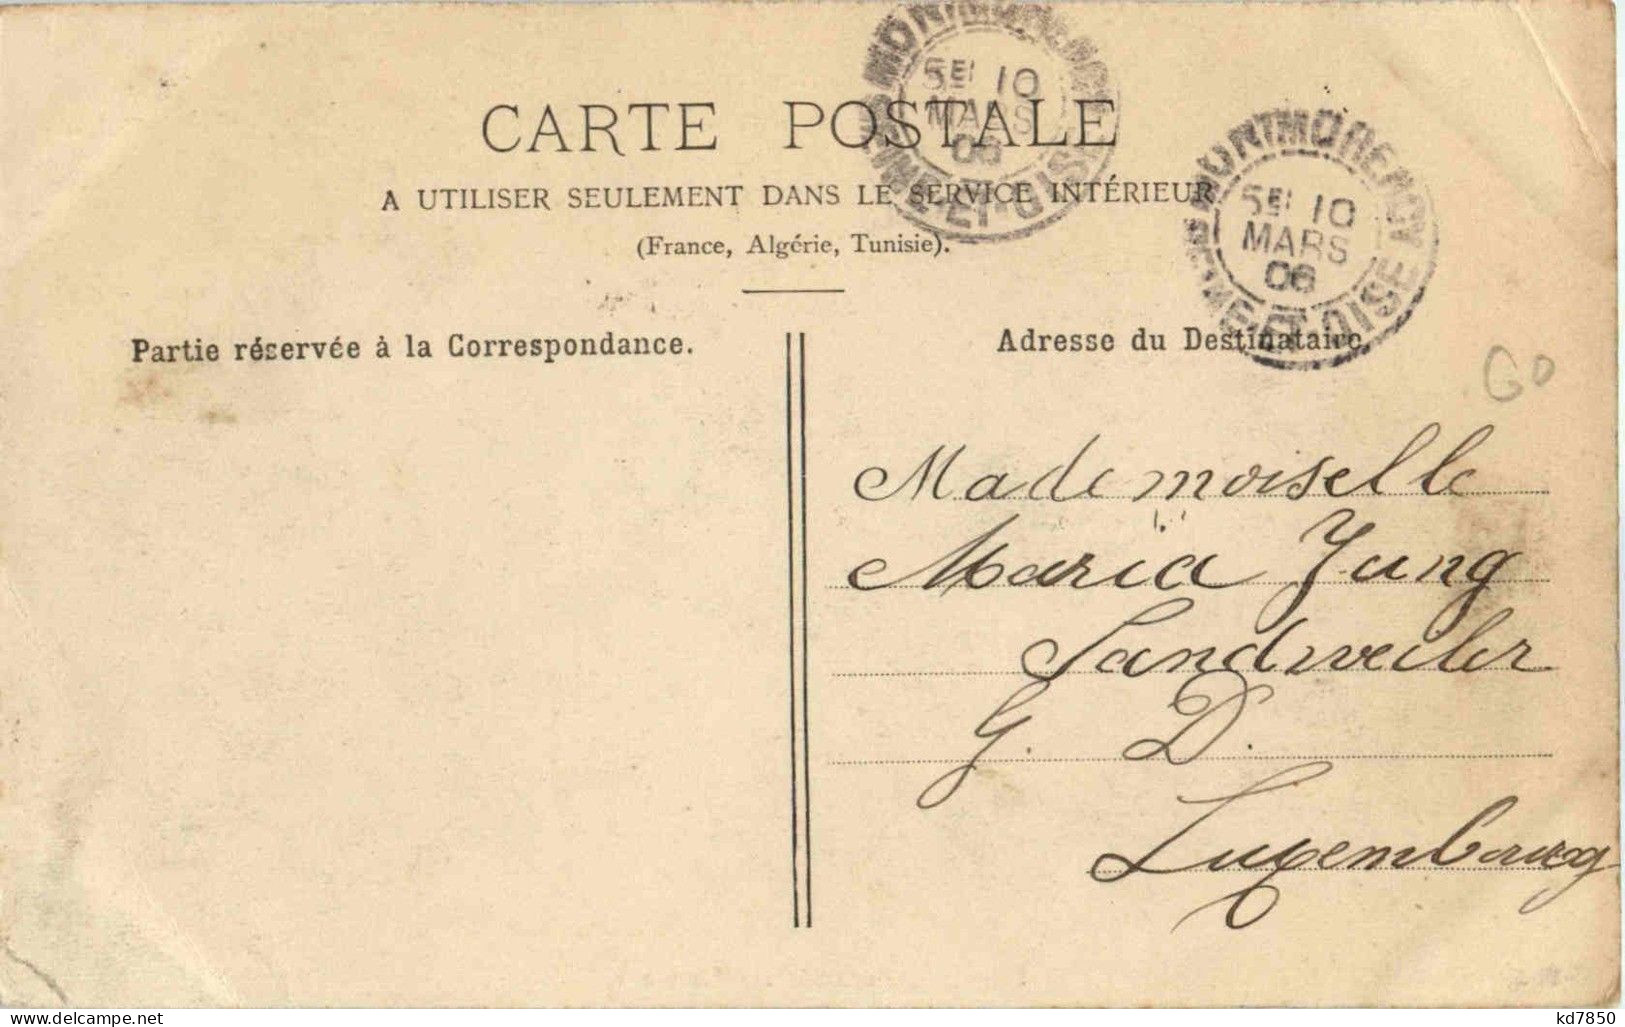 CARTE POSTALE
A UTILISER SEULEMENT DANS LE SERVICE INTÉRIEUR
(France, Algérie, Tunisie).
MONTMORENCY
5E 10
MARS
06
SEINE-ET-OISE
MONTMORENCY
5E 10
MARS
06
SEINE-ET-OISE
Partie réservée à la Correspondance.
Adresse du Destinataire.
Mademoiselle
Maria Jung
Sandweiler
G. D.
Luxembourg
kd7850